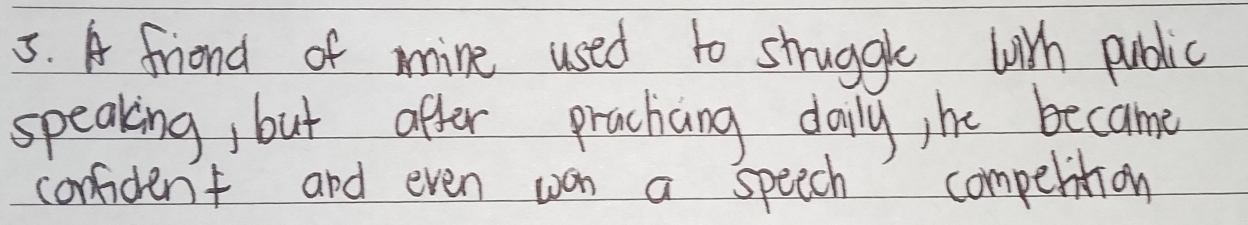 5. A friend of mine used to struggle with public
speaking, but after practicing daily, he became
confident and even won a speech competition